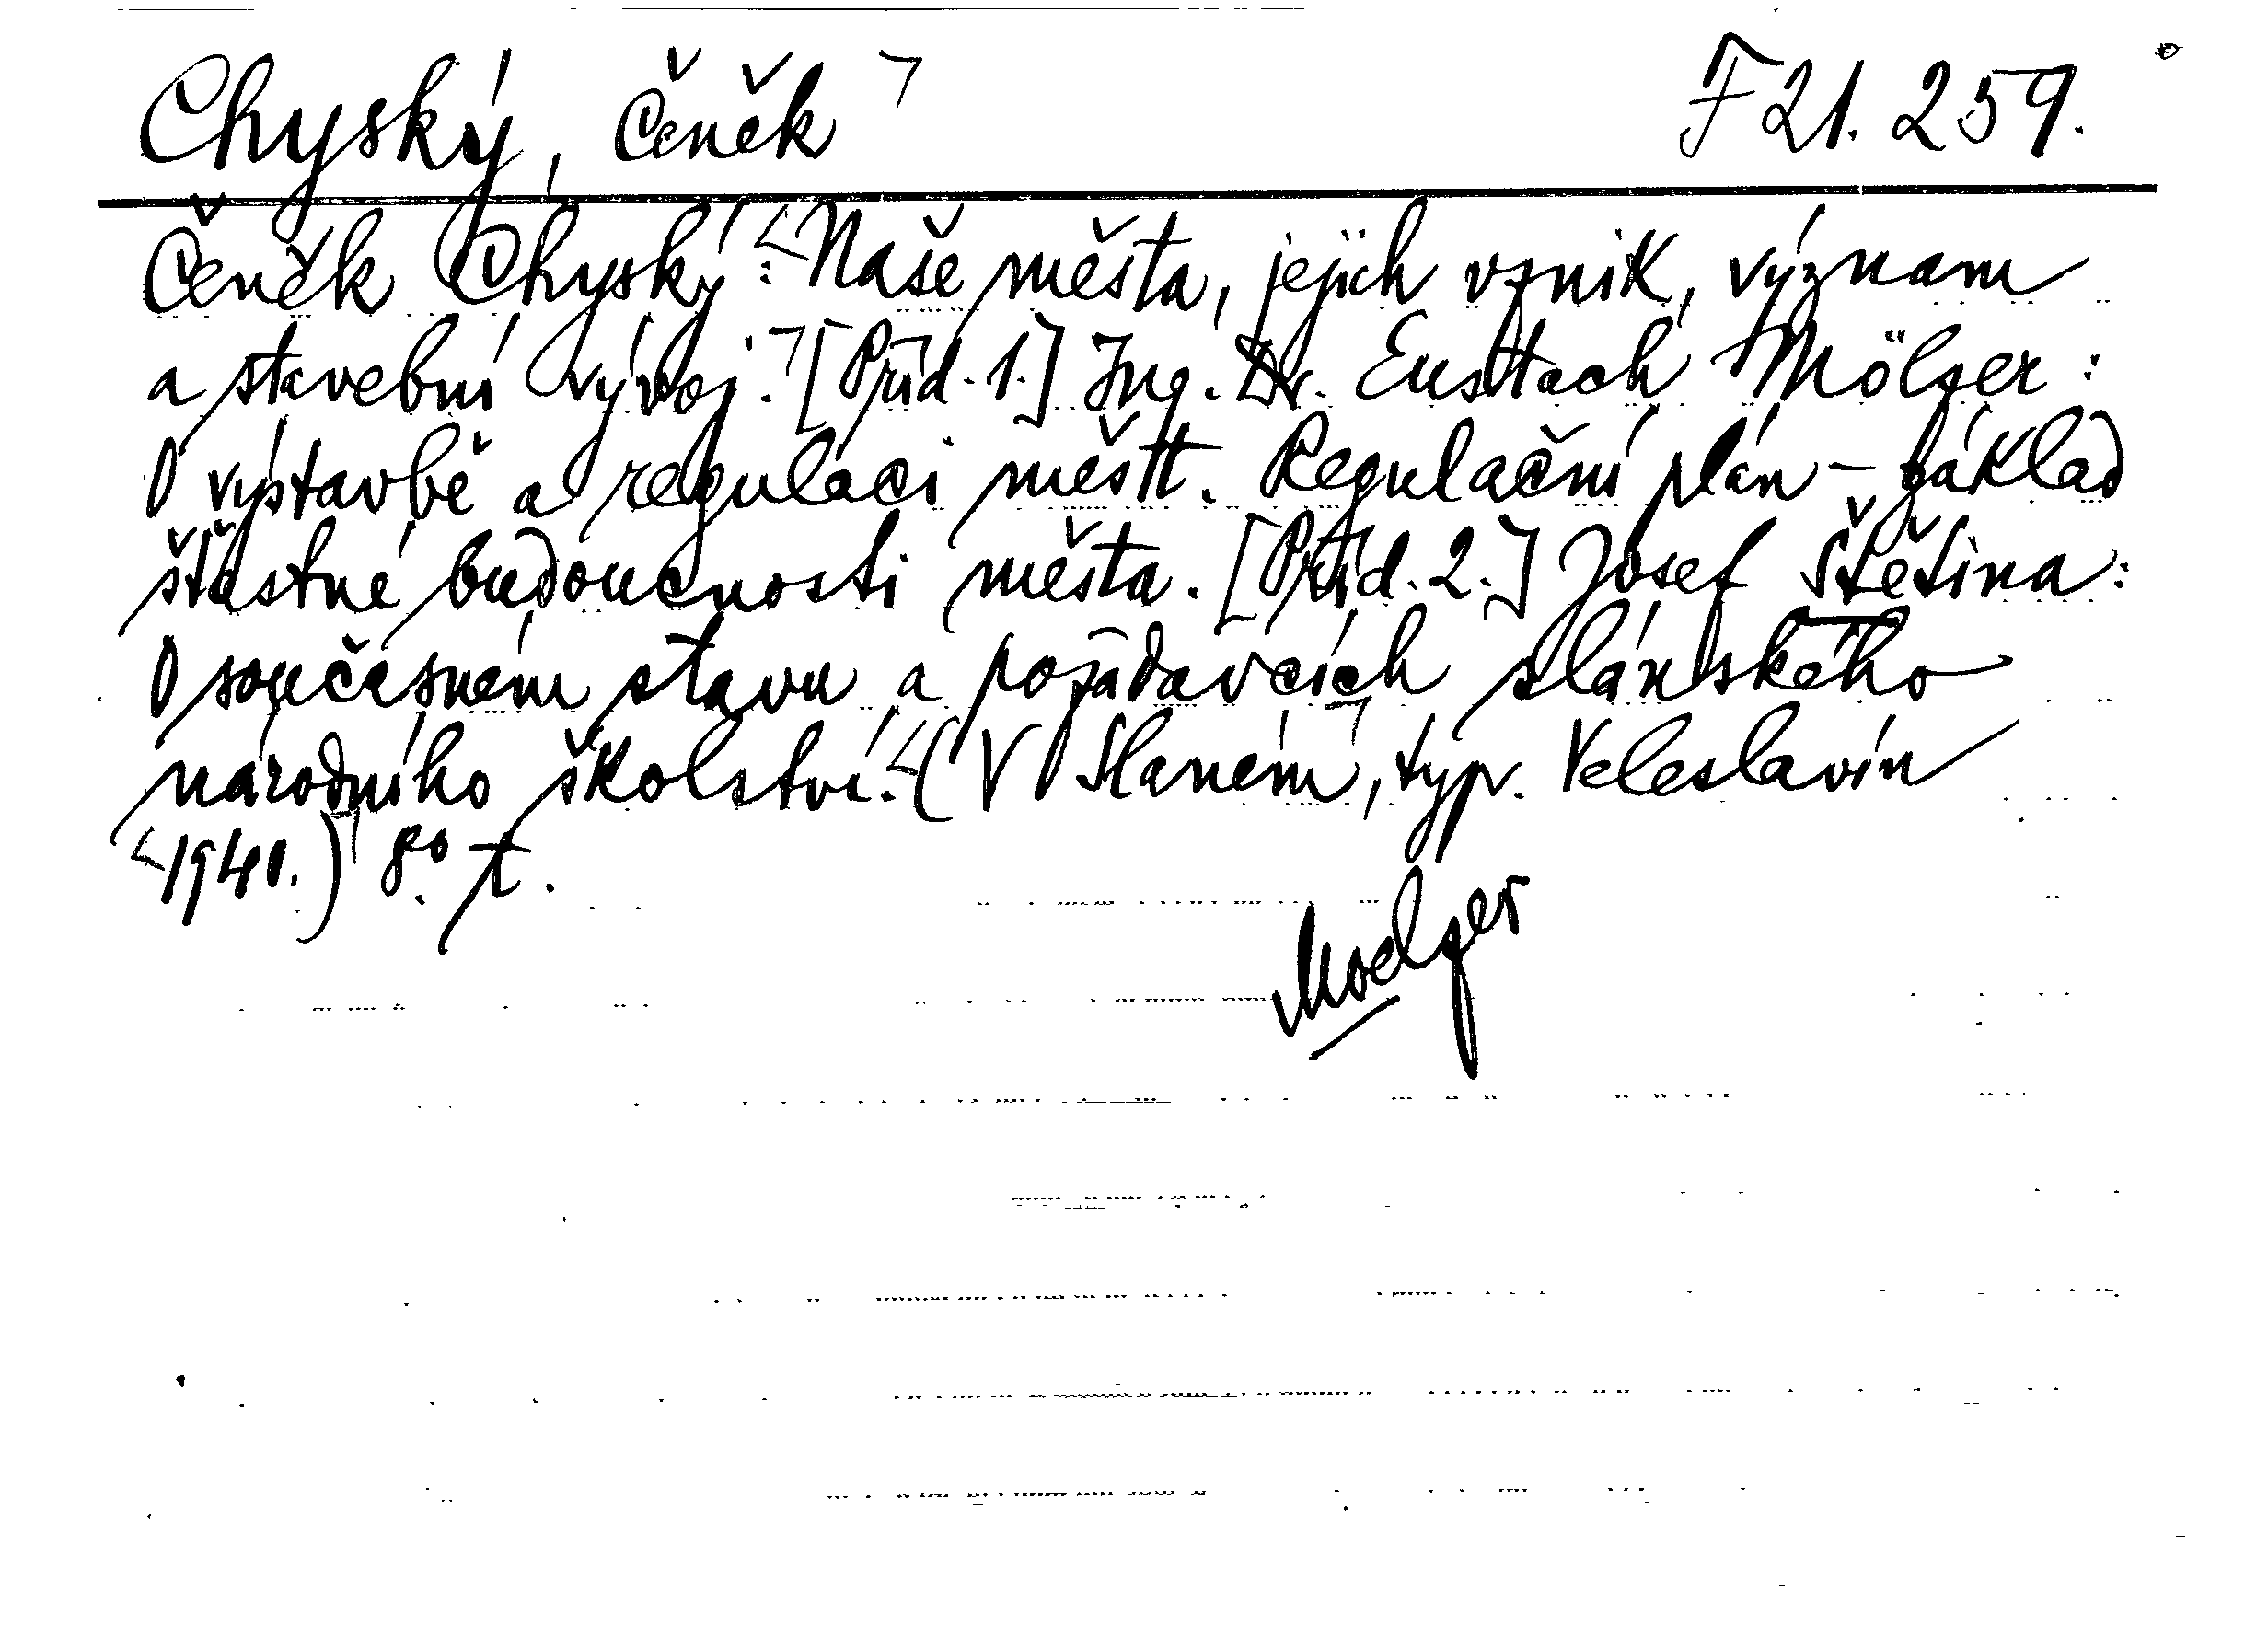 Chyský, Čeněk F 21.259.
Čeněk Chyský: Naše města, jejich vznik, význam
a stavební vývoj. [Příd. 1.] Ing. Dr. Eustach Mölzer:
O výstavbě a regulaci měst. Regulační plán - základ
šťastné budoucnosti města. [Příd. 2.] Josef Štětina:
O současném stavu a požadavcích slánského
národního školství. (V Slaném, typ. Veleslavín
1940.) 8° t.
Moelzer